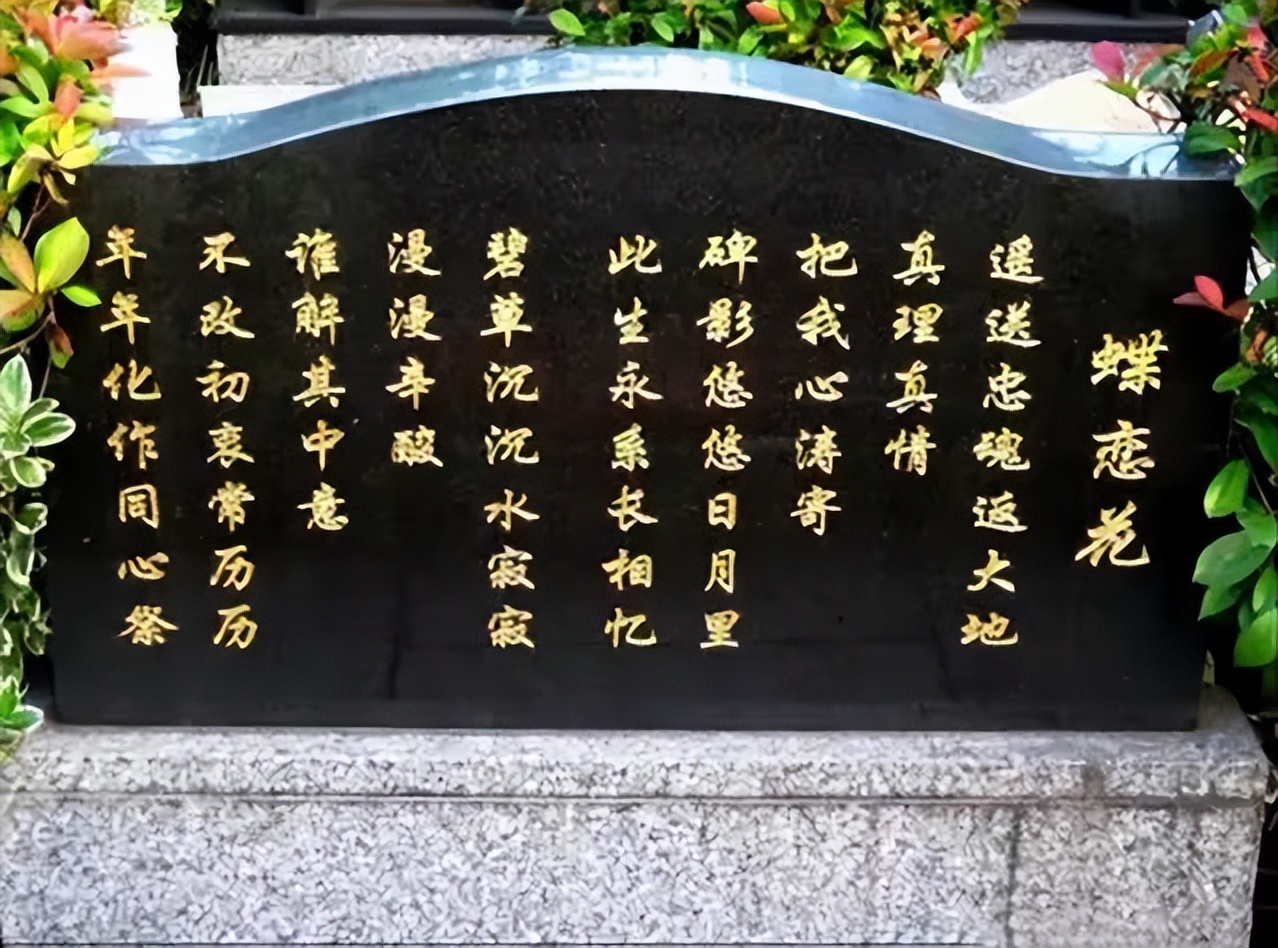 蝶恋花
遥送忠魂返大地
真理真情
把我心涛寄
碑影悠悠日月里
此生永系长相忆
碧草沉沉水寂寂
漫漫辛酸
谁解其中意
不改初衷常历历
年年化作同心祭